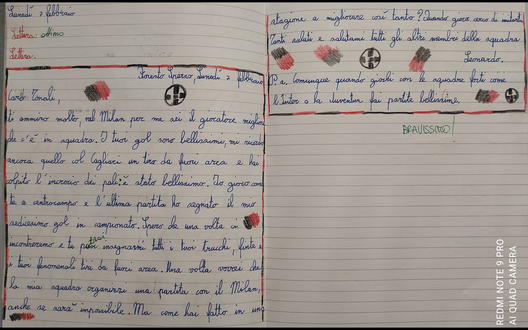 Lunedì 2 febbraio
Lettera: Ottimo
Lettera.
Lunedì 2 febbraio
Caro Tonali,
ti ammiro molto, nel Milan per me sei il giocatore miglio
che c'è in squadra. I tuoi gol sono bellissimi, mi ricordo
ancora quello col Cagliari un tiro da fuori area e hai
colpito l'incrocio dei pali: è stato bellissimo. Io gioco com
te a centrocampo e l'ultima partita ho segnato il mio
gol in campionato. Spero che una volta ci
incontreremo e tu potrai insegnarmi tutti i tuoi trucchi, finte e
i tuoi fenomenali tiri da fuori area. Una volta vorrei che
la mia squadra organizzi una partita con il Milan,
anche se sarà impossibile. Ma come hai fatto in una
stagione a migliorare così tanto? Quando giochi
Tanti saluti e salutami tutti gli altri membri della squadra.
Leonardo.
P.s. comunque quando giochi con le squadre forti come
l'Inter o la Juventus fai partite bellissime.
BRAVISSIMO
REDMI NOTE 9 PRO
AI QUAD CAMERA